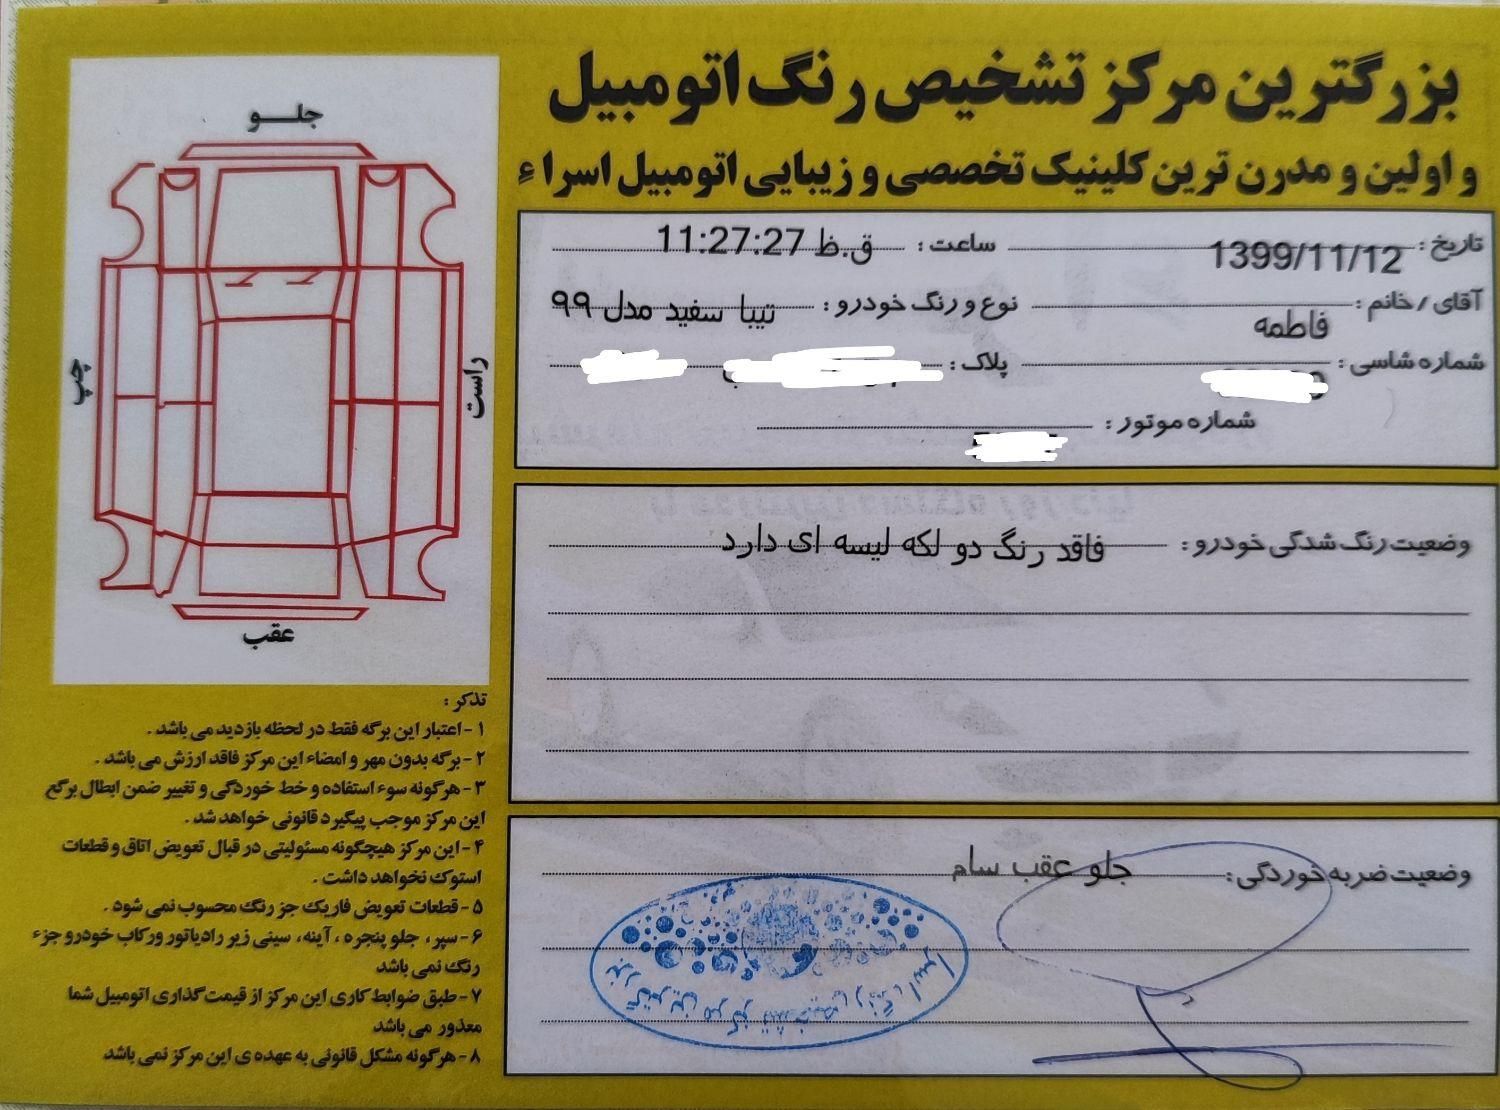 بزرگترین مرکز تشخیص رنگ اتومبیل
و اولین و مدرن ترین کلینیک تخصصی و زیبایی اتومبیل اسراء
تاریخ : 1399/11/12 ساعت : 11:27:27 ق.ظ
آقای / خانم : فاطمه نوع و رنگ خودرو : تیبا سفید مدل ۹۹
شماره شاسی : پلاک :
شماره موتور :
وضعیت رنگ شدگی خودرو : فاقد رنگ دو لکه لیسه ای دارد
وضعیت ضربه خوردگی : جلو عقب سام
بزرگترین مرکز تشخیص رنگ اسرا
جلو
راست
چپ
عقب
تذکر :
۱ - اعتبار این برگه فقط در لحظه بازدید می باشد .
۲ - برگه بدون مهر و امضاء این مرکز فاقد ارزش می باشد .
۳ - هرگونه سوء استفاده و خط خوردگی و تغییر ضمن ابطال برگع
این مرکز موجب پیگیرد قانونی خواهد شد .
۴ - این مرکز هیچگونه مسئولیتی در قبال تعویض اتاق و قطعات
استوک نخواهد داشت .
۵ - قطعات تعویض فابریک جز رنگ محسوب نمی شود .
۶ - سپر ، جلو پنجره ، آینه ، سینی زیر رادیاتور ورکاب خودرو جزء
رنگ نمی باشد
۷ - طبق ضوابط کاری این مرکز از قیمت گذاری اتومبیل شما
معذور می باشد
۸ - هرگونه مشکل قانونی به عهده ی این مرکز نمی باشد